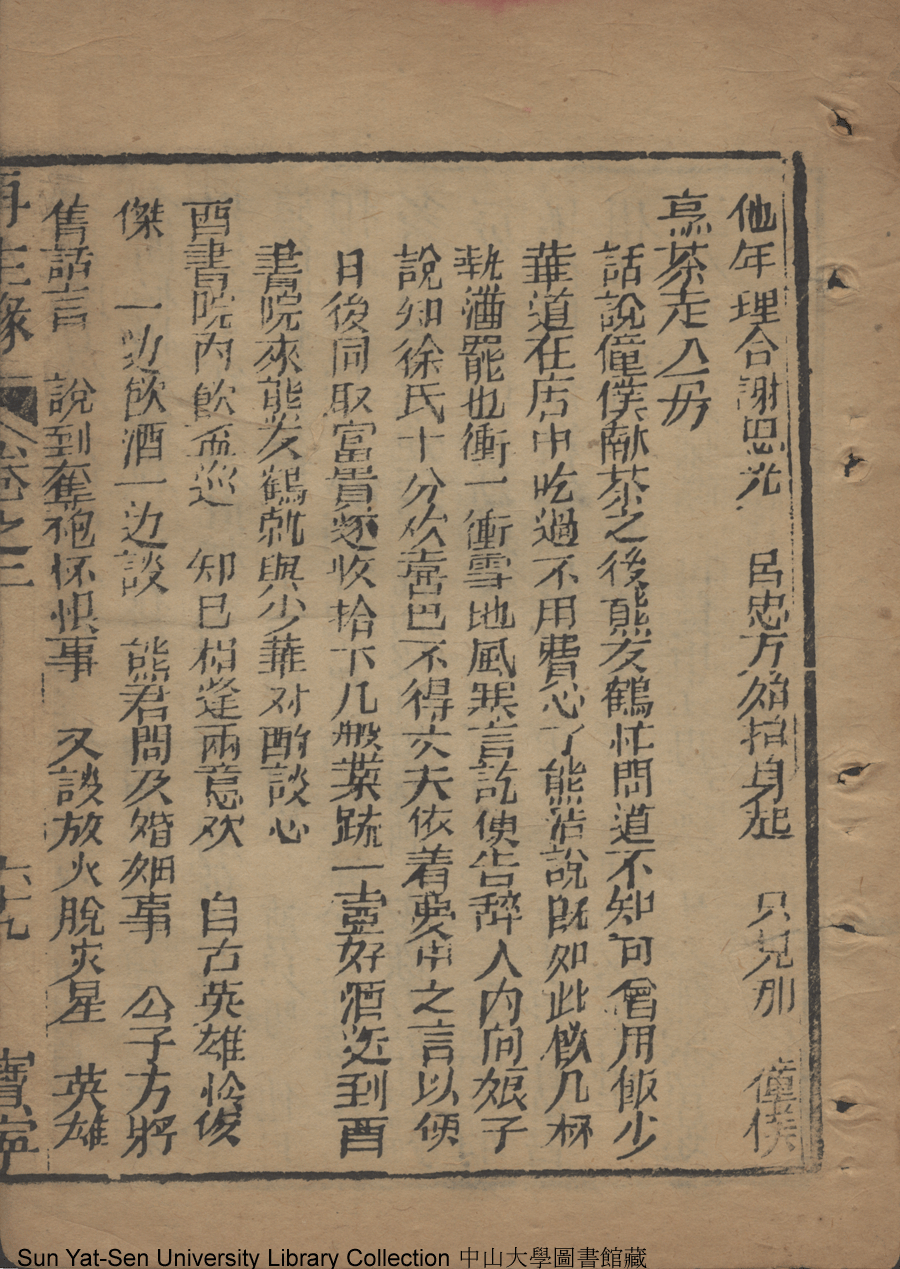 他年理合謝忠光　呂忠方始抬身起　只見那　僮僕
烹茶走入毋
話說僮僕献茶之後熊友鶴忙問道不知可曾用飯少
華道在店中吃過不用費心了熊浩說既如此飲几杯
執酒罷也衝一衝雪地風寒言訖便告辞入内向娘子
說知徐氏十分欢喜巴不得丈夫依着夢中之言以便
日後同取富貴遂收拾下几般菜蔬一壺好酒送到西
書院來熊友鶴就與少華对酌談心
西書院内飲盃巡　知已相逢兩意欢　自古英雄惜俊
傑　一边飲酒一边談　熊君問及婚姻事　公子方將
舊話言　說到奪袍怀恨事　又談放火脫灾星　英雄
再生緣　卷之三　六十九　寶寧
Sun Yat-Sen University Library Collection 中山大學圖書館藏